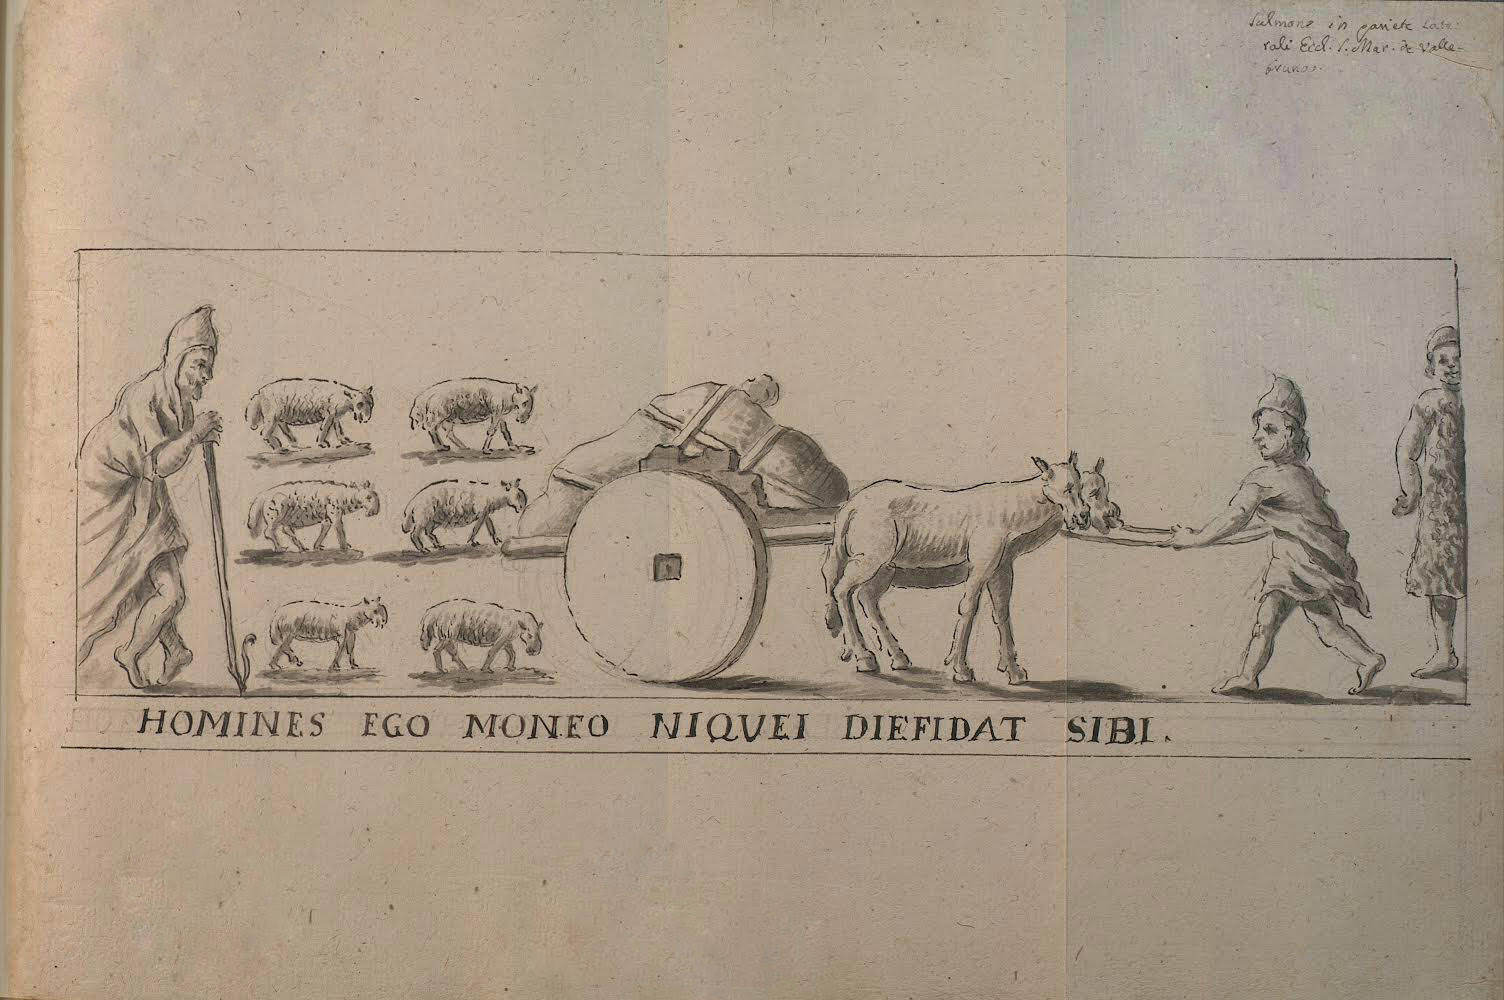 Sulmone in pariete late-
rali Eccl. S. Mar. de Valle-
HOMINES EGO MONEO NIQVEI DIEFIDAT SIBI.